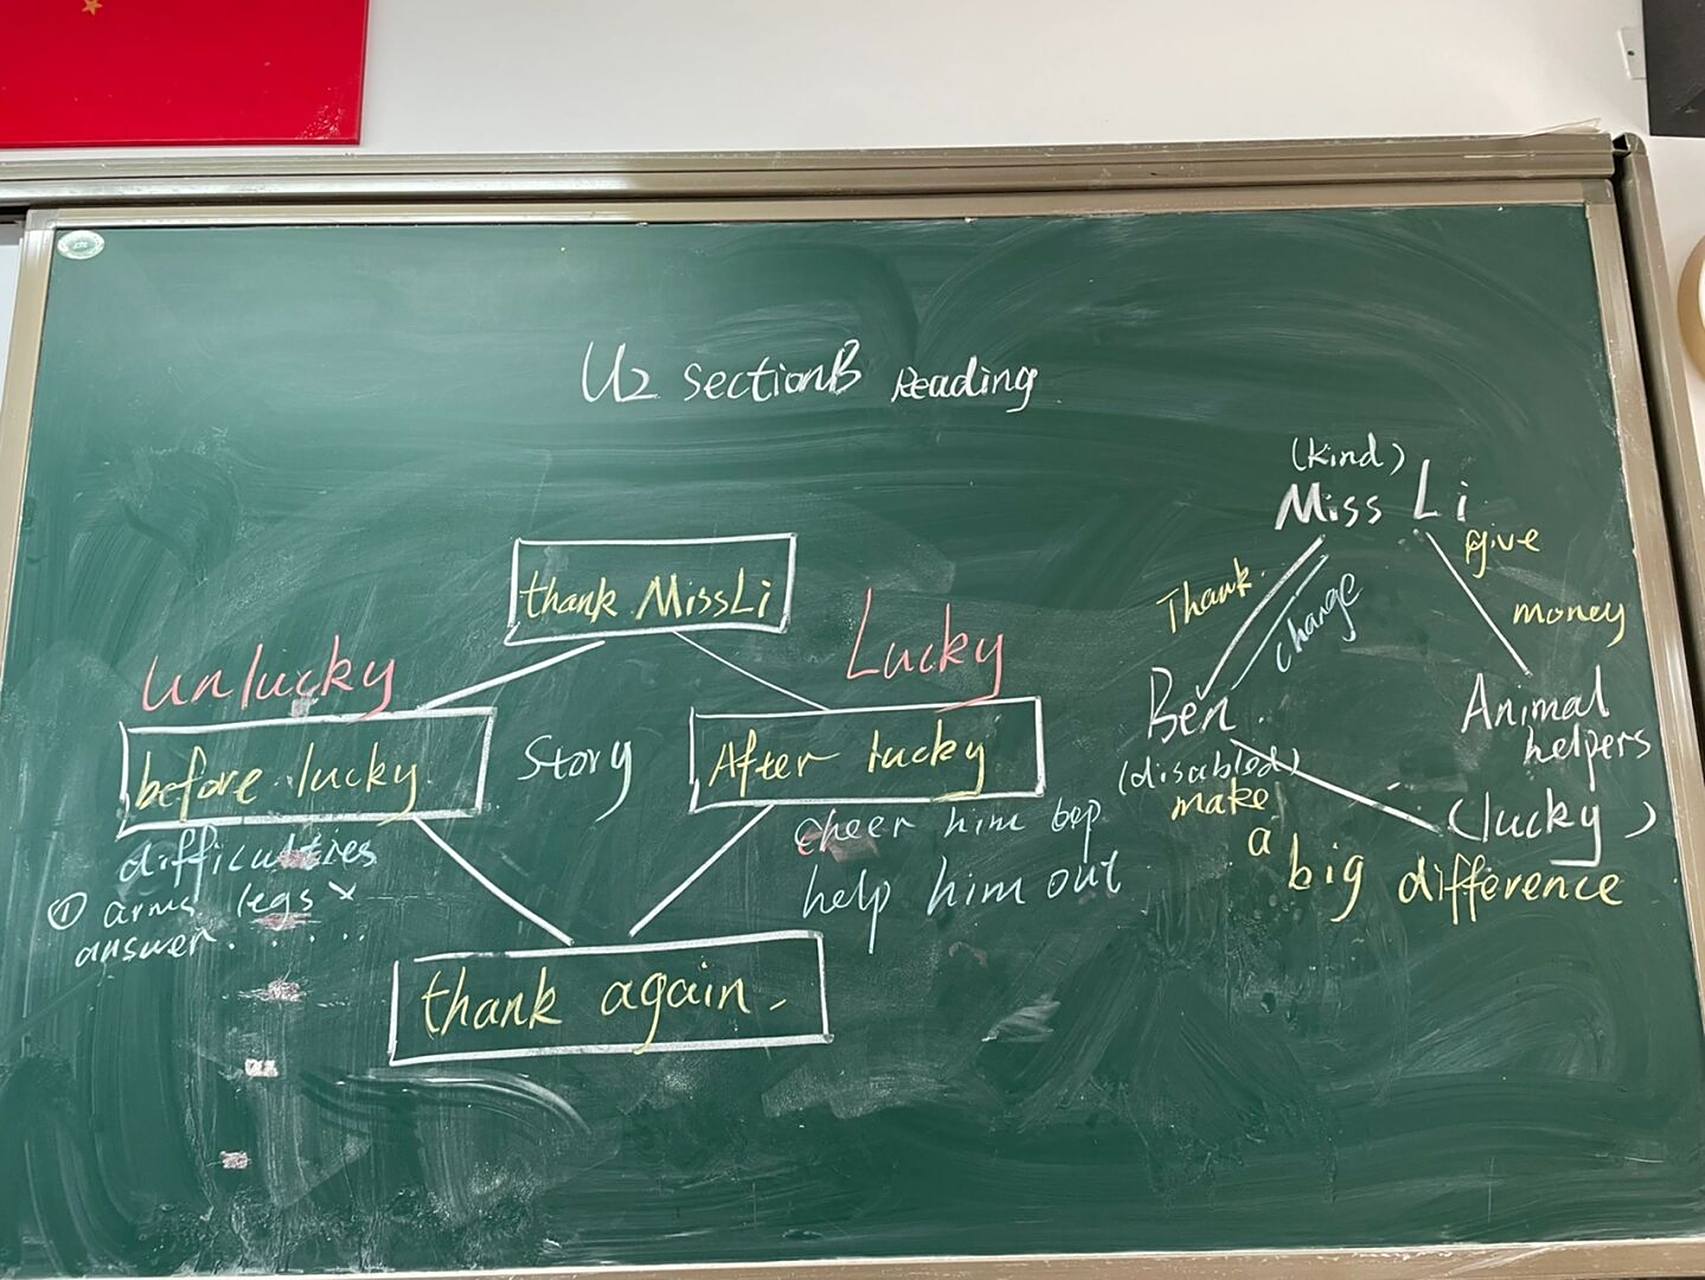 U2 SectionB Reading
thank MissLi
Unlucky
Lucky
before lucky
Story
After lucky
difficulties
① arms legs ×
answer......
cheer him
help him out
thank again.
(kind)
Miss Li
Thank
change
give
money
Ben
(disabled)
Animal
helpers
(lucky)
make
a
big difference